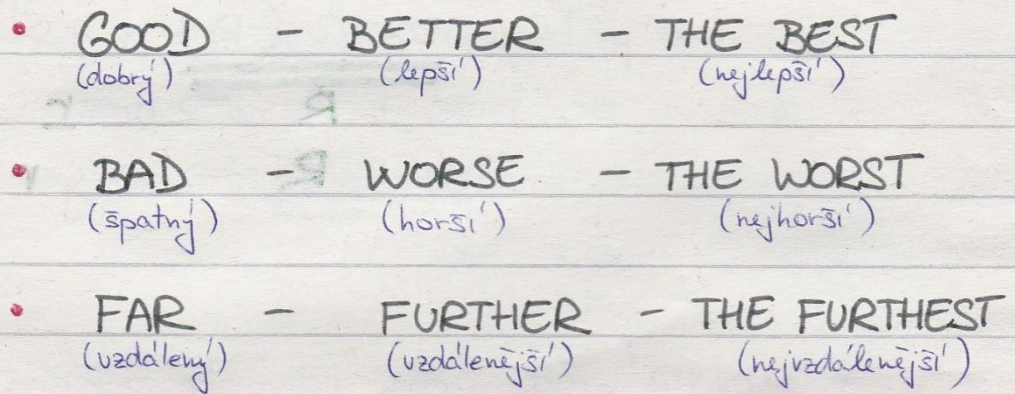 • GOOD – BETTER – THE BEST
(dobrý) (lepší) (nejlepší)
• BAD – WORSE – THE WORST
(špatný) (horší) (nejhorší)
• FAR – FURTHER – THE FURTHEST
(vzdálený) (vzdálenější) (nejvzdálenější)